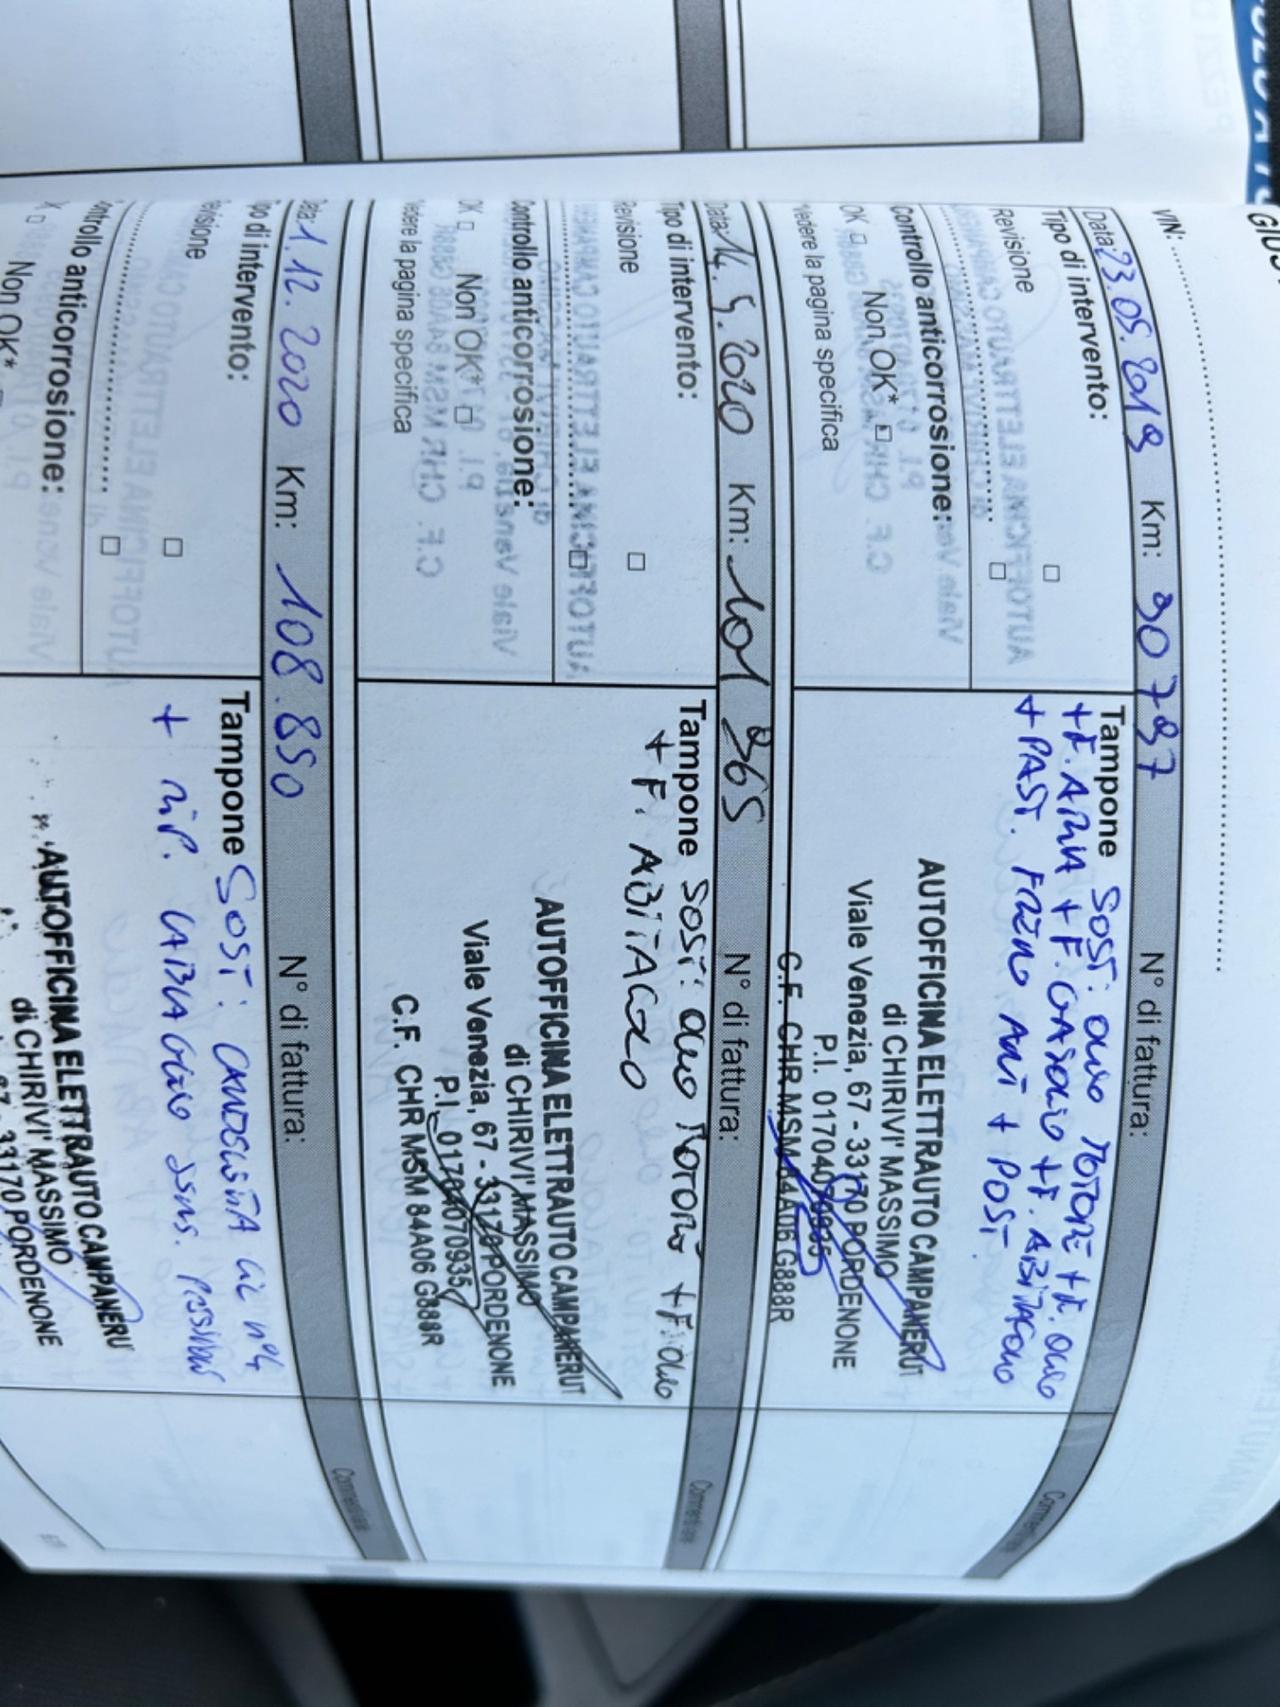 VIN:
Data: 23.05.2019 Km: 90797 N° di fattura:
Tipo di intervento:
Revisione
Controllo anticorrosione:
OK Non OK*
Vedere la pagina specifica
Tampone SOST. OLIO MOTORE + F. OLIO
+ F. ARIA + F. GASOLIO + F. ABITACOLO
+ PAST. FRENO ANT + POST.
AUTOFFICINA ELETTRAUTO CAMPANERUT
di CHIRIVI' MASSIMO
Viale Venezia, 67 - 33170 PORDENONE
P.I. 01704070935
C.F. CHR MSM 84A06 G888R
Data: 14.5.2020 Km: 101365 N° di fattura:
Tipo di intervento:
Revisione
Controllo anticorrosione:
OK Non OK*
Vedere la pagina specifica
Tampone SOST. OLIO MOTORE + F. OLIO
+ F. ABITACOLO
AUTOFFICINA ELETTRAUTO CAMPANERUT
di CHIRIVI' MASSIMO
Viale Venezia, 67 - 33170 PORDENONE
P.I. 01704070935
C.F. CHR MSM 84A06 G888R
Data: 1.12.2020 Km: 108.850 N° di fattura:
Tipo di intervento:
Revisione
Controllo anticorrosione:
OK Non OK*
Tampone SOST. CANDELETTA CIL n°4
+ RIP. CABLAGGIO SENS.
AUTOFFICINA ELETTRAUTO CAMPANERU
di CHIRIVI' MASSIMO
67 - 33170 PORDENONE